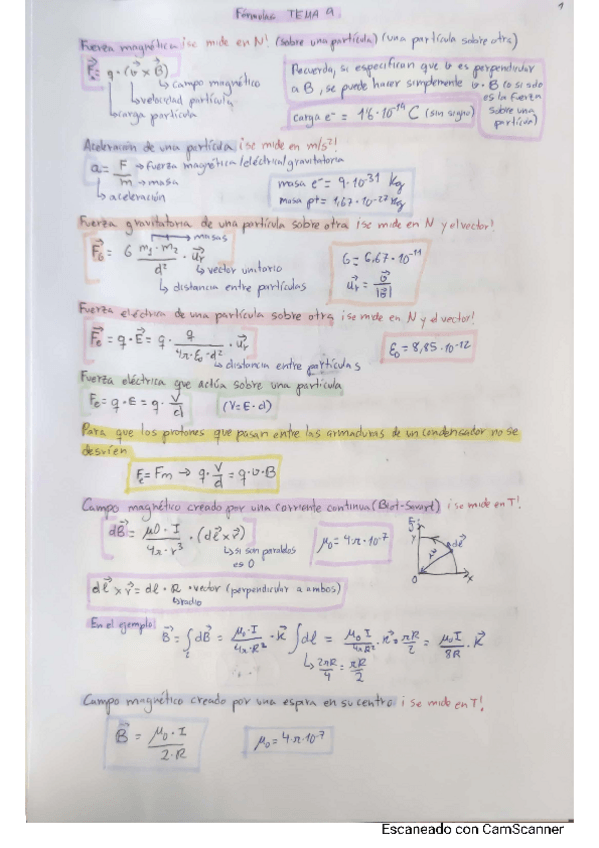 Fórmulas TEMA 9.
1
Fuerza magnética ¡se mide en N! (sobre una partícula) (una partícula sobre otra)
F = q · (v x B)
↳ campo magnético
↳ velocidad partícula
↳ carga partícula
Recuerda, si especifican que v es perpendicular
a B, se puede hacer simplemente v · B (o si solo
es la fuerza
sobre una
partícula)
carga e⁻ = 1'6 · 10⁻¹⁹ C (sin signo)
Aceleración de una partícula ¡se mide en m/s²!
a = F/m → fuerza magnética/eléctrica/gravitatoria
→ masa
↳ aceleración
masa e⁻ = 9 · 10⁻³¹ Kg
masa pt = 1,67 · 10⁻²⁷ Kg
Fuerza gravitatoria de una partícula sobre otra ¡se mide en N y el vector!
→ masas
F_G = G m₁ · m₂/d² · u_r
↳ vector unitario
↳ distancia entre partículas
G = 6,67 · 10⁻¹¹
u_r = v/|v|
Fuerza eléctrica de una partícula sobre otra ¡se mide en N y el vector!
F_e = q · E = q · q/4π · ε₀ · d² · u_r
↳ distancia entre partículas
ε₀ = 8,85 · 10⁻¹²
Fuerza eléctrica que actúa sobre una partícula
F_e = q · E = q · V/d (V = E · d)
Para que los protones que pasan entre las armaduras de un condensador no se
desvíen
F_e = F_m → q · V/d = q · v · B
Campo magnético creado por una corriente continua (Biot-Savart) ¡se mide en T!
dB = μ0 · I/4π · r³ · (dl x r)
↳ si son paralelos
es 0
μ₀ = 4π · 10⁻⁷
Y
dl
r
O
X
dl x r = dl · R · vector (perpendicular a ambos)
↳ radio
En el ejemplo
B = ∫ dB = μ₀ · I/4π · R² · K ∫ dl = μ₀ I/4πR² · K · πR/2 = μ₀ I/8R · K
↳ 2πR/4 = πR/2
Campo magnético creado por una espira en su centro ¡se mide en T!
B = μ₀ · I/2 · R
μ₀ = 4 · π · 10⁻⁷
Escaneado con CamScanner